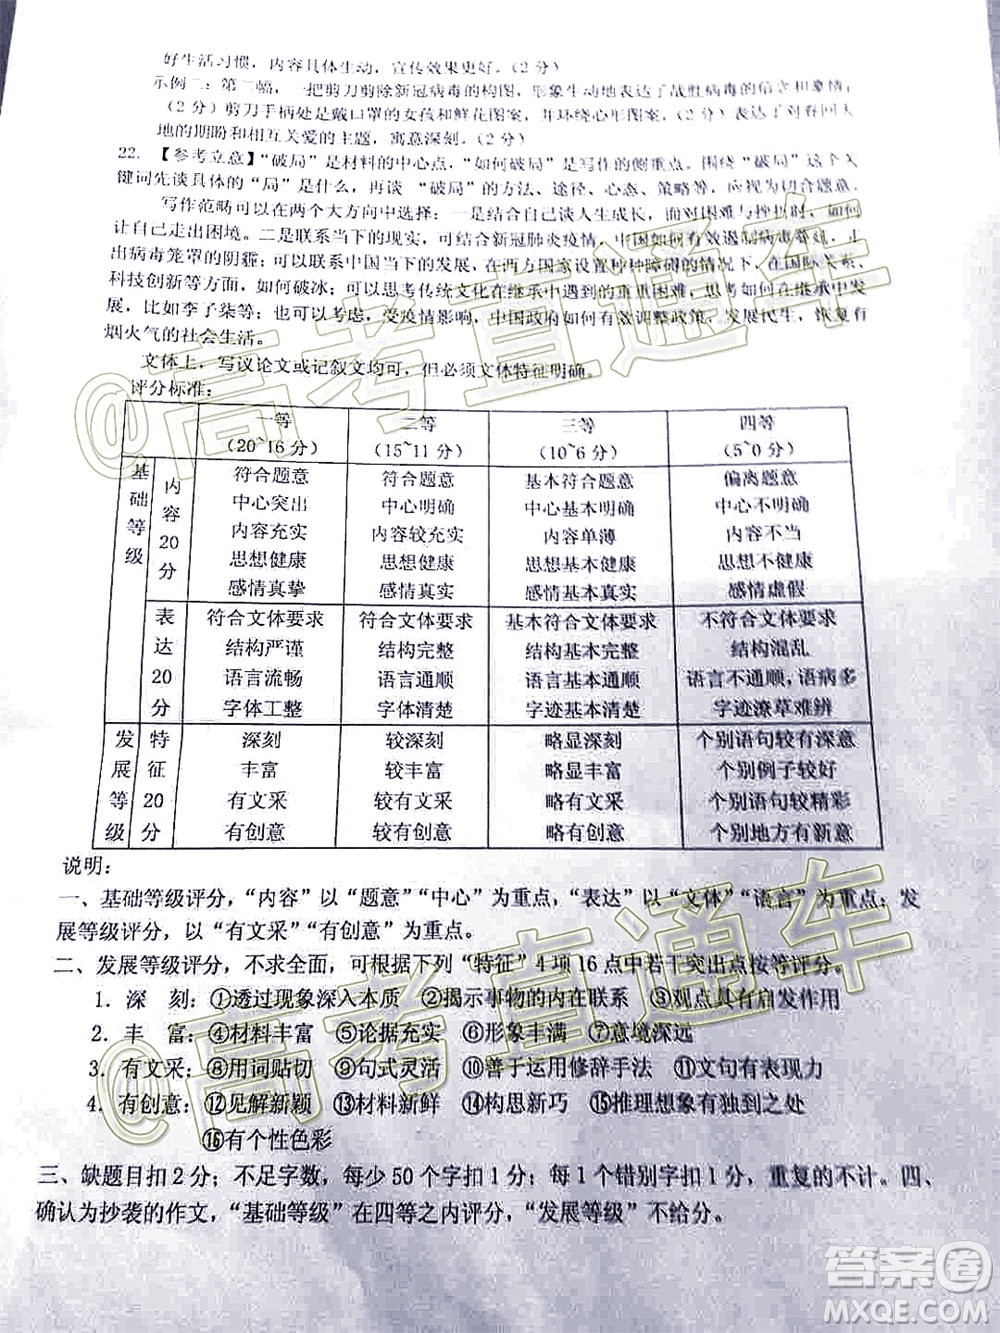 好生活习惯，内容具体生动，宣传效果更好。（2 分）
示例二：第二幅，一把剪刀剪除新冠病毒的构图，形象生动地表达了战胜病毒的信念和豪情；
（2 分）剪刀手柄处是戴口罩的女孩和鲜花图案，并环绕心形图案。（2 分）表达了对春回大
地的期盼和相互关爱的主题，寓意深刻。（2 分）
22.【参考立意】“破局”是材料的中心点，“如何破局”是写作的侧重点。围绕“破局”这个关
键词先谈具体的“局”是什么，再谈 “破局”的方法、途径、心态、策略等，应视为符合题意。
写作范畴可以在两个大方向中选择：一是结合自己谈人生成长，面对困难与挫折时，如何
让自己走出困境。二是联系当下的现实，可结合新冠肺炎疫情，如何有效遏制病毒蔓延，走
出病毒笼罩的阴霾；可以联系中国当下的发展，在西方国家设置种种障碍的情况下，在国际关系、
科技创新等方面，如何破冰；可以思考传统文化在继承中遇到的重重困难，如何继承与发
展，比如李子柒等；也可以考虑，受疫情影响，中国政府如何有效调整政策，发展民生，恢复有
烟火气的社会生活。
文体上，写议论文或记叙文均可，但必须文体特征明确。
评分标准：
一等 二等 三等 四等
（20~16 分） （15~11 分） （10~6 分） （5~0 分）
基础等级 内容20分 符合题意 符合题意 基本符合题意 偏离题意
中心突出 中心明确 中心基本明确 中心不明确
内容充实 内容较充实 内容单薄 内容不当
思想健康 思想健康 思想基本健康 思想不健康
感情真挚 感情真实 感情基本真实 感情虚假
表达20分 符合文体要求 符合文体要求 基本符合文体要求 不符合文体要求
结构严谨 结构完整 结构基本完整 结构混乱
语言流畅 语言通顺 语言基本通顺 语言不通顺，语病多
字体工整 字体清楚 字迹基本清楚 字迹潦草难辨
发展等级 特征20分 深刻 较深刻 略显深刻 个别语句较有深意
丰富 较丰富 略显丰富 个别例子较好
有文采 较有文采 略有文采 个别语句较精彩
有创意 较有创意 略有创意 个别地方有新意
说明：
一、基础等级评分，“内容”以“题意”“中心”为重点，“表达”以“文体”“语言”为重点；发
展等级评分，以“有文采”“有创意”为重点。
二、发展等级评分，不求全面，可根据下列“特征”4 项 16 点中若干突出点按等评分。
1. 深　刻：①透过现象深入本质 ②揭示事物的内在联系 ③观点具有启发作用
2. 丰　富：④材料丰富 ⑤论据充实 ⑥形象丰满 ⑦意境深远
3. 有文采：⑧用词贴切 ⑨句式灵活 ⑩善于运用修辞手法 ⑪文句有表现力
4. 有创意：⑫见解新颖 ⑬材料新鲜 ⑭构思新巧 ⑮推理想象有独到之处
⑯有个性色彩
三、缺题目扣 2 分；不足字数，每少 50 个字扣 1 分；每 1 个错别字扣 1 分，重复的不计。四、
确认为抄袭的作文，“基础等级”在四等之内评分，“发展等级”不给分。
@高考直通车
@高考直通车
答案圈
MXQE.COM